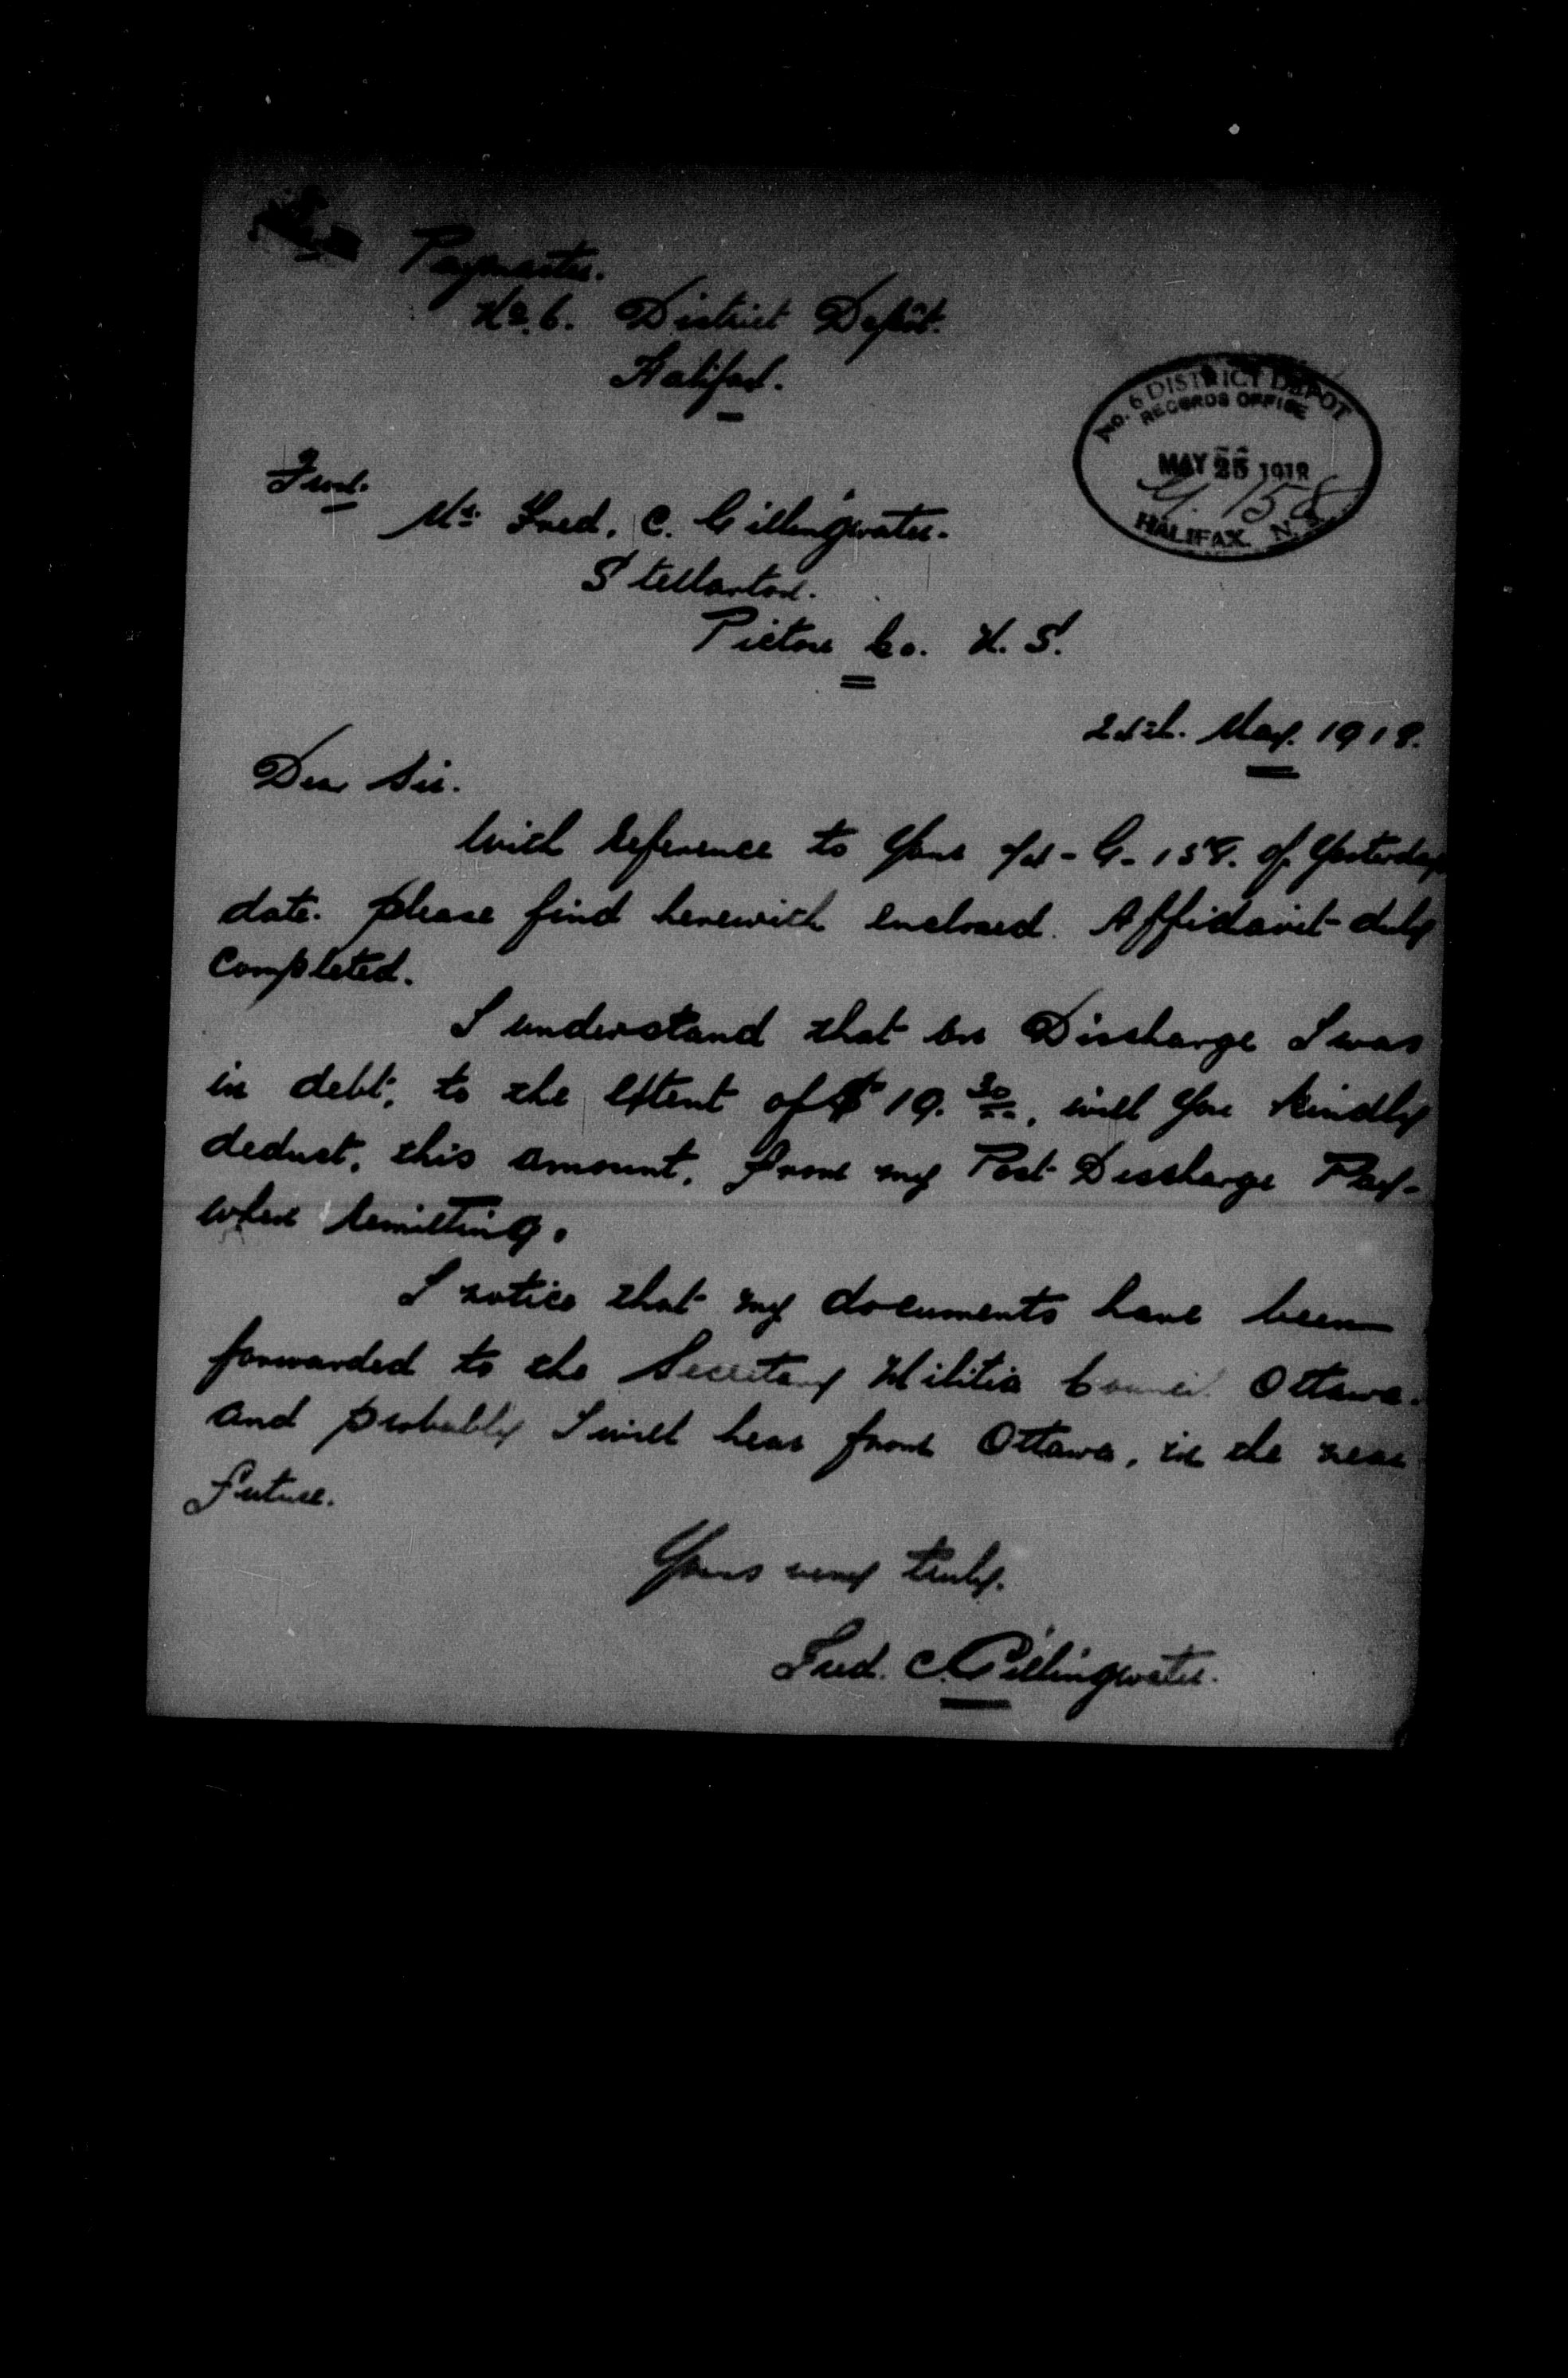 Paymaster.
No. 6. District Depôt.
Halifax.
No. 6 DISTRICT DEPOT
RECORDS OFFICE
MAY 25 1918
G. 158
HALIFAX. N.S.
From.
Mr. Fred. C. Gillingwater.
Stellarton.
Pictou Co. N. S.
May. 1918.
Dear Sir.
With reference to Yours G-158. of Yesterday
date. please find herewith enclosed. Affidavit duly
completed.
I understand that on Discharge I was
in debt, to the extent of $ 19. 30/00, will You kindly
deduct, this amount, from my Post Discharge Pay-
when remitting.
I notice that my documents have been
forwarded to the Secretary Militia Council Ottawa.
and probably I will hear from Ottawa, in the near
future.
Yours very truly.
Fred. C. Gillingwater.